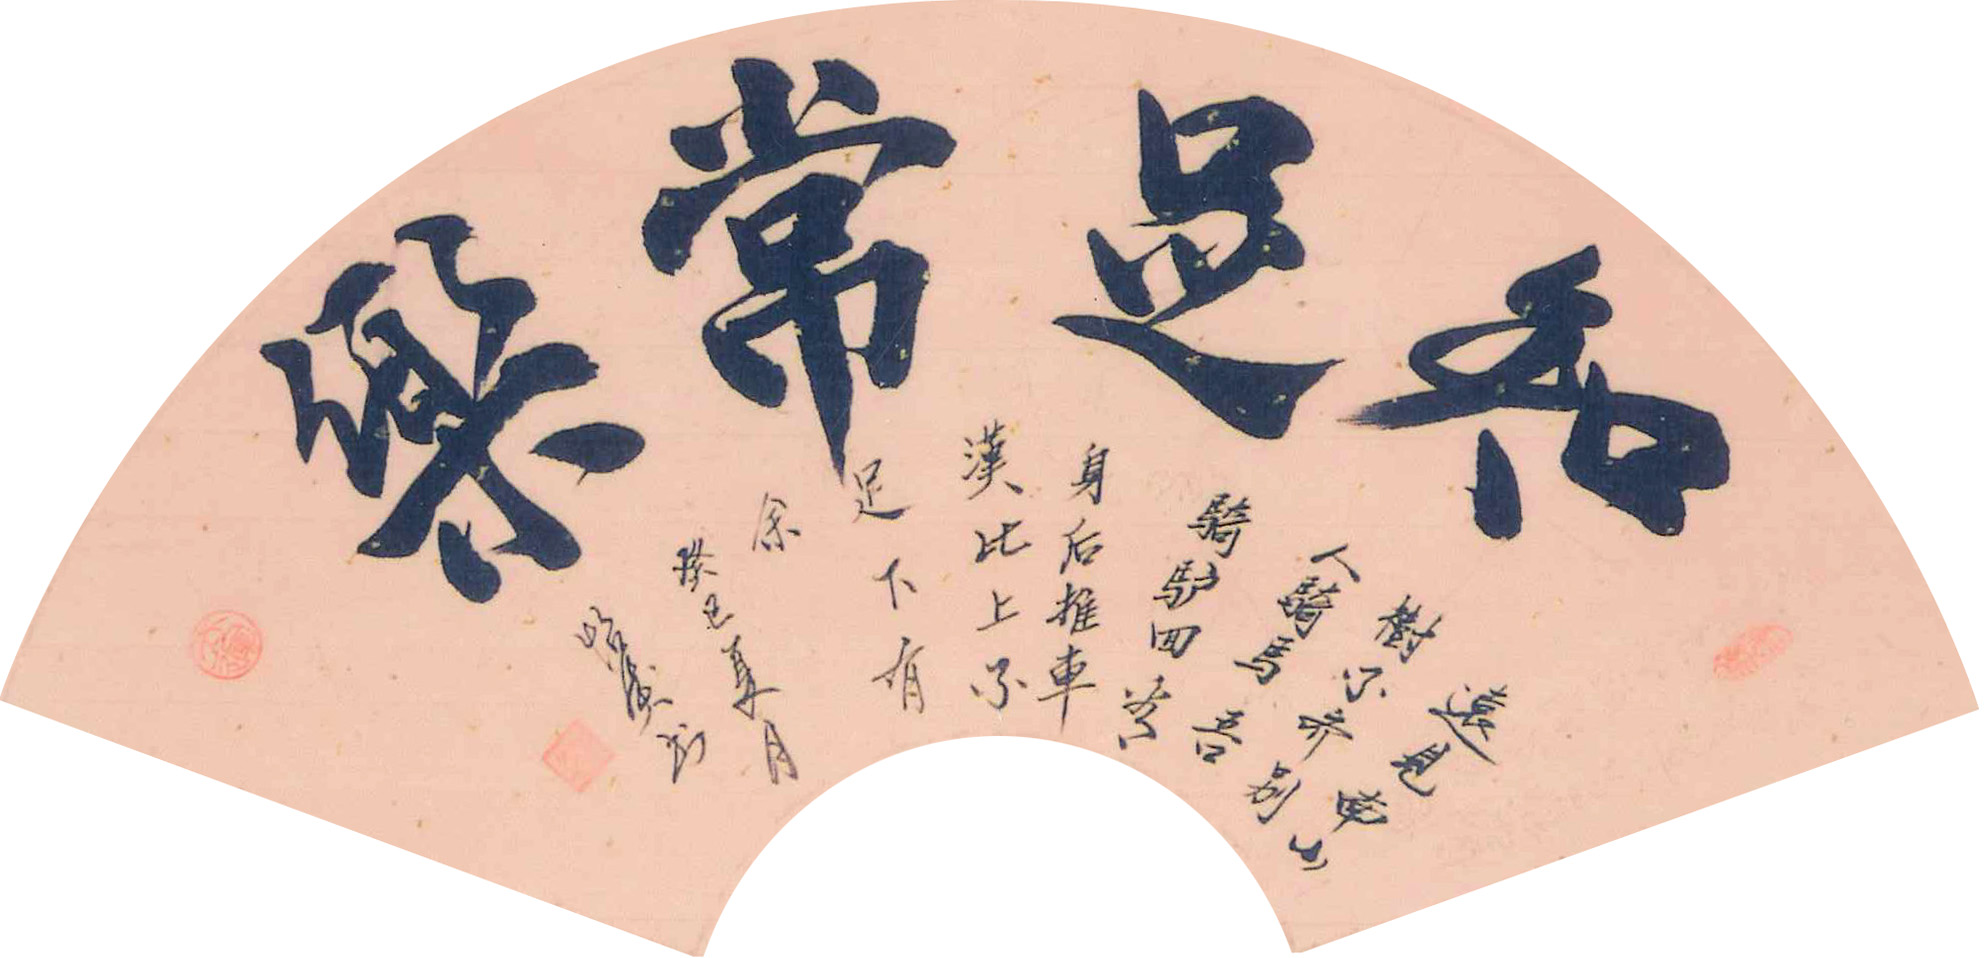 知足常樂
遠見山
樹不齐別
人騎馬吾
騎驴回看
身后推車
漢比上不
足下有
余
癸巳夏月